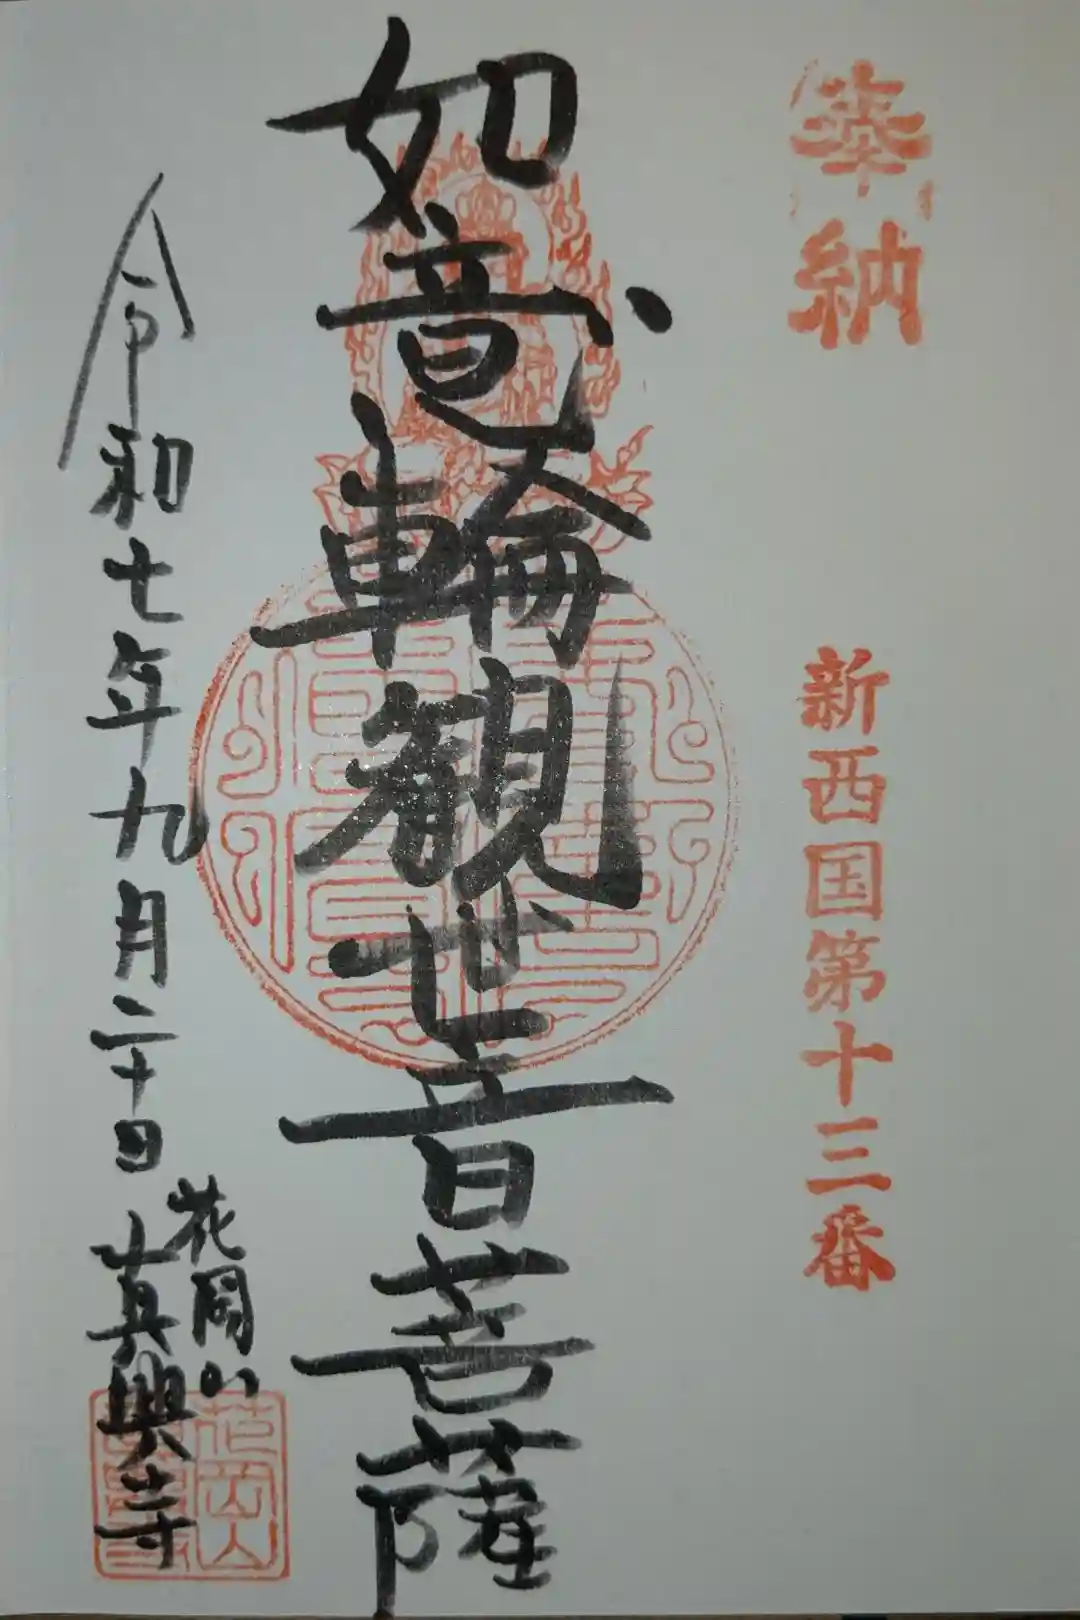 奉納
新西国第十三番
如意輪観世音菩薩
令和七年九月二十日
花岡山
真興寺
花岡山